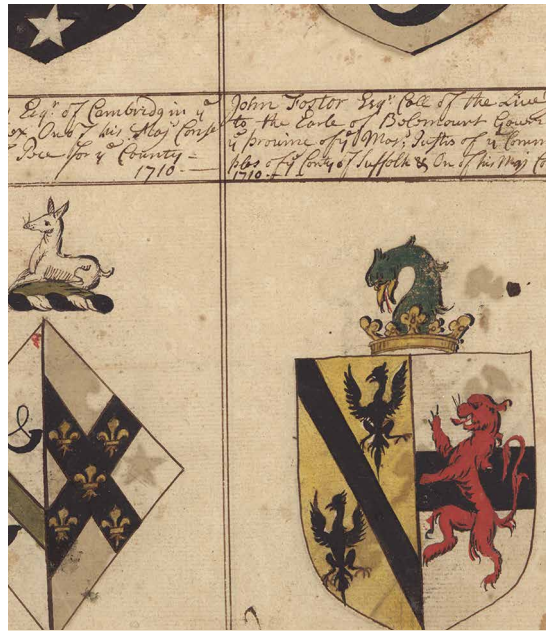 Esqr. of Cambridg in ye
ex, One of his Maj Conse
Pece for ye County –
1710
John Foster Esqr. Coll of the Live
to the Earle of Belomourt Gover
ye provinc of ye Mas; Justis of ye Comm
ples of ye Conty of Suffolk & On of his Maj Co
1710